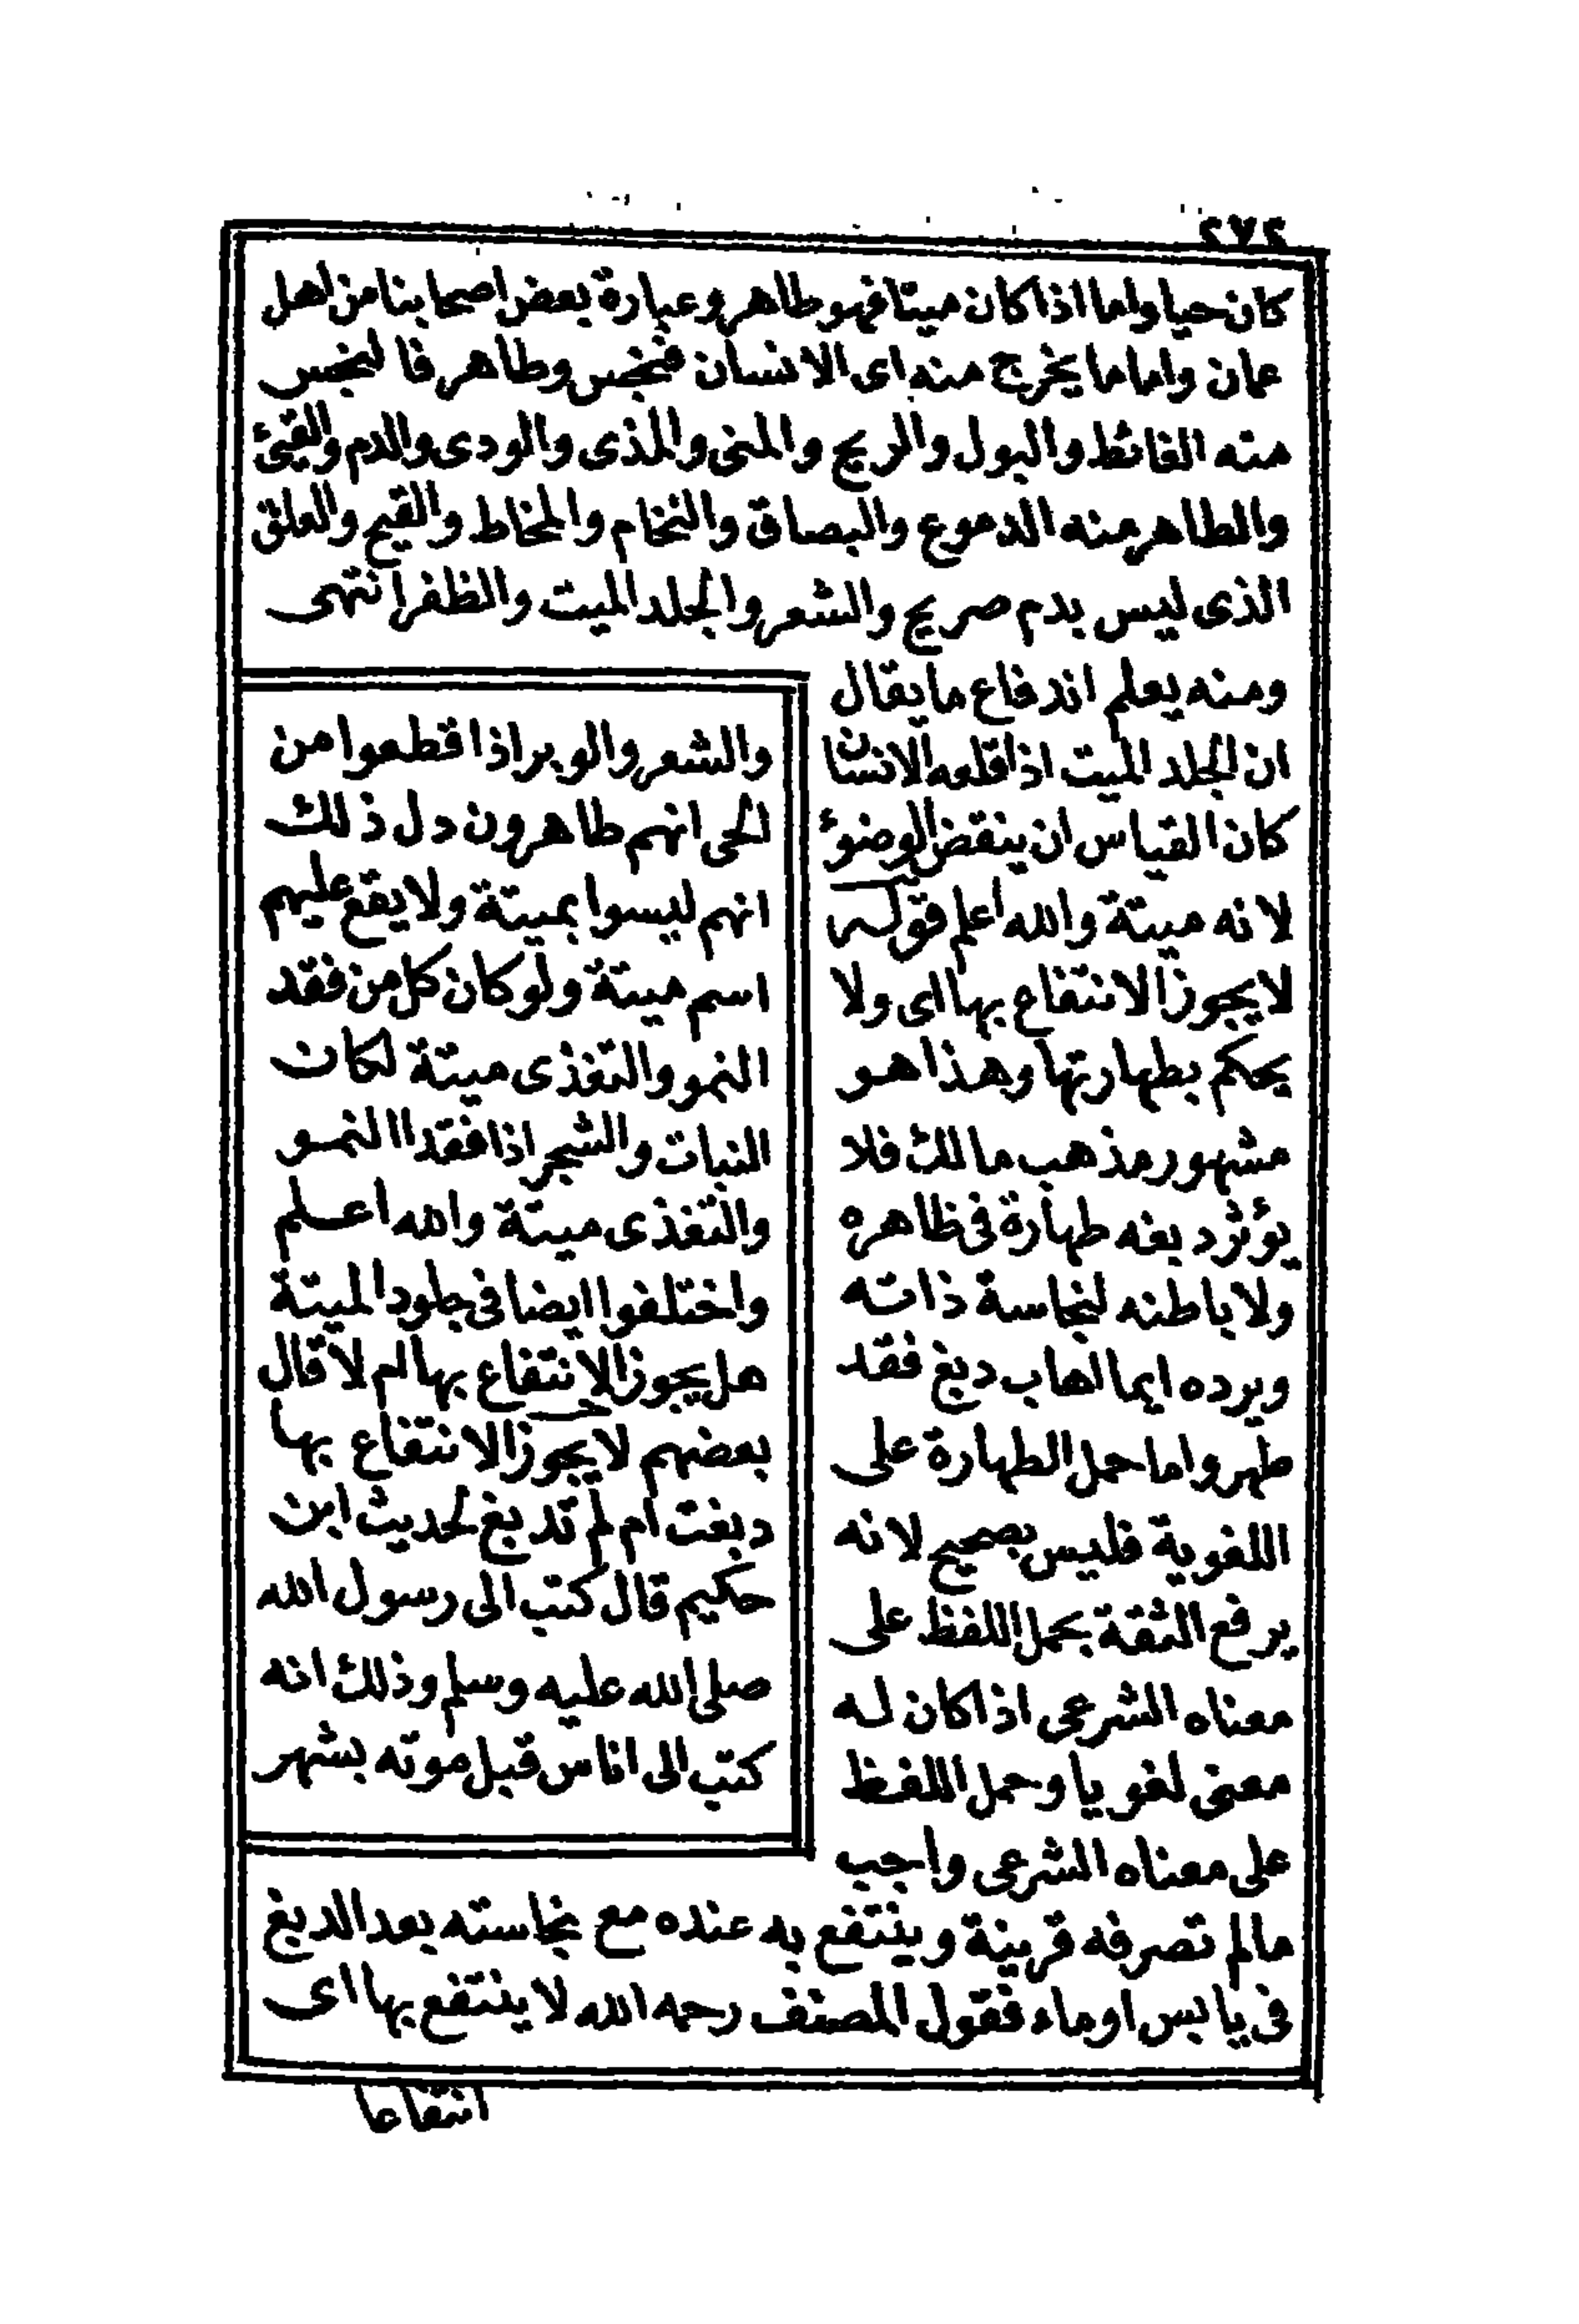 ٢٧٢
كان حيا واما اذا كان ميتا فهو طاهر وعبارة بعض اصحابنا من اهل
عمان واما ما يخرج منه اى الانسان فنجس وطاهر فالنجس
منه الغائط والبول والريح والمنى والمذى والودى والدم والقيئ
والطاهر منه الدموع والبصاق والنخام والمخاط والقيح والعلق
الذى ليس بدم صريح والشعر والجلد الميت والظفر انتهى
ومنه يعلم اندفاع ما يقال
ان الجلد الميت اذا قلعه الانسان
كان القياس ان ينقض الوضوٴ
لانه ميتة والله اعلم قوله
لا يجوز الانتفاع بها اى ولا
يحكم بطهارتها وهذا هو
مشهور مذهب مالك فلا
يؤثر دبغه طهارة فى ظاهره
ولا باطنه لنجاسة ذاته
ويرده ايما اهاب دبغ فقد
طهر واما حمل الطهارة على
اللغوية فليس بصحيح لانه
يرفع الثقة بحمل اللفظ على
معناه الشرعى اذا كان له
معنى لغويا وحمل اللفظ
على معناه الشرعى واجب
مالم تصرفه قرينة وينتفع به عنده مع نجاسته بعد الدبغ
فى يابس او ماء فقول المصنف رحمه الله لا ينتفع بها اى
والشعر والوبر اذا قطعوا من
الحى انهم طاهرون دل ذلك
انهم ليسوا بميتة ولا يقع عليهم
اسم ميتة ولو كان كل من فقد
النمو والتغذى ميتة لكان
النبات والشجر اذا فقدا النمو
والتغذى ميتة والله اعلم
واختلفوا ايضا فى جلود الميتة
هل يجوز الانتفاع بها ام لا قال
بعضهم لا يجوز الانتفاع بها
دبغت ام لم تدبغ لحديث ابن
حكيم قال كتب الى رسول الله
صلى الله عليه وسلم وذلك انه
كتب الى اناس قبل موته بشهر
انتفاعا